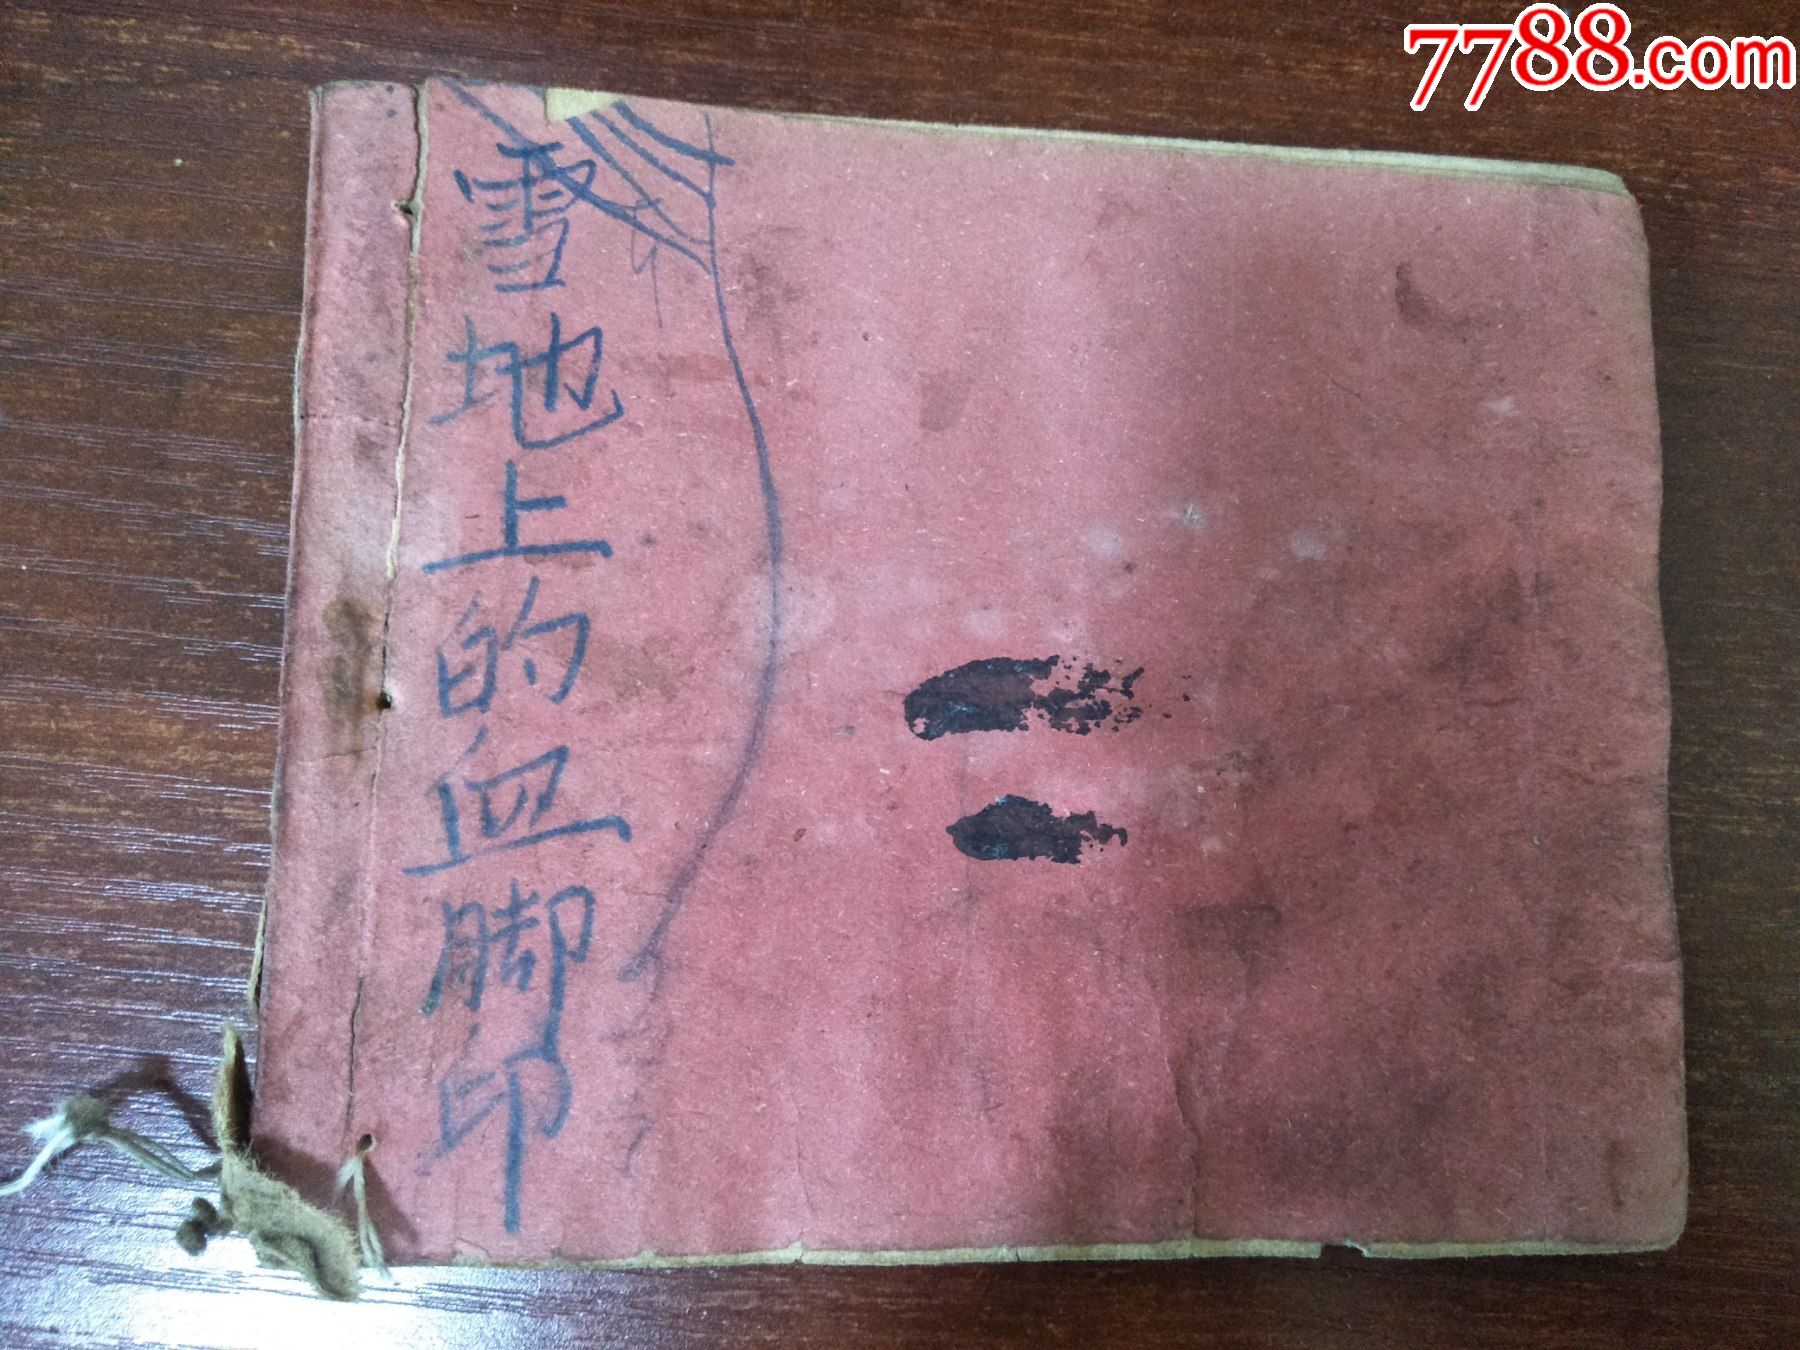 7788.com
雪地上的血脚印